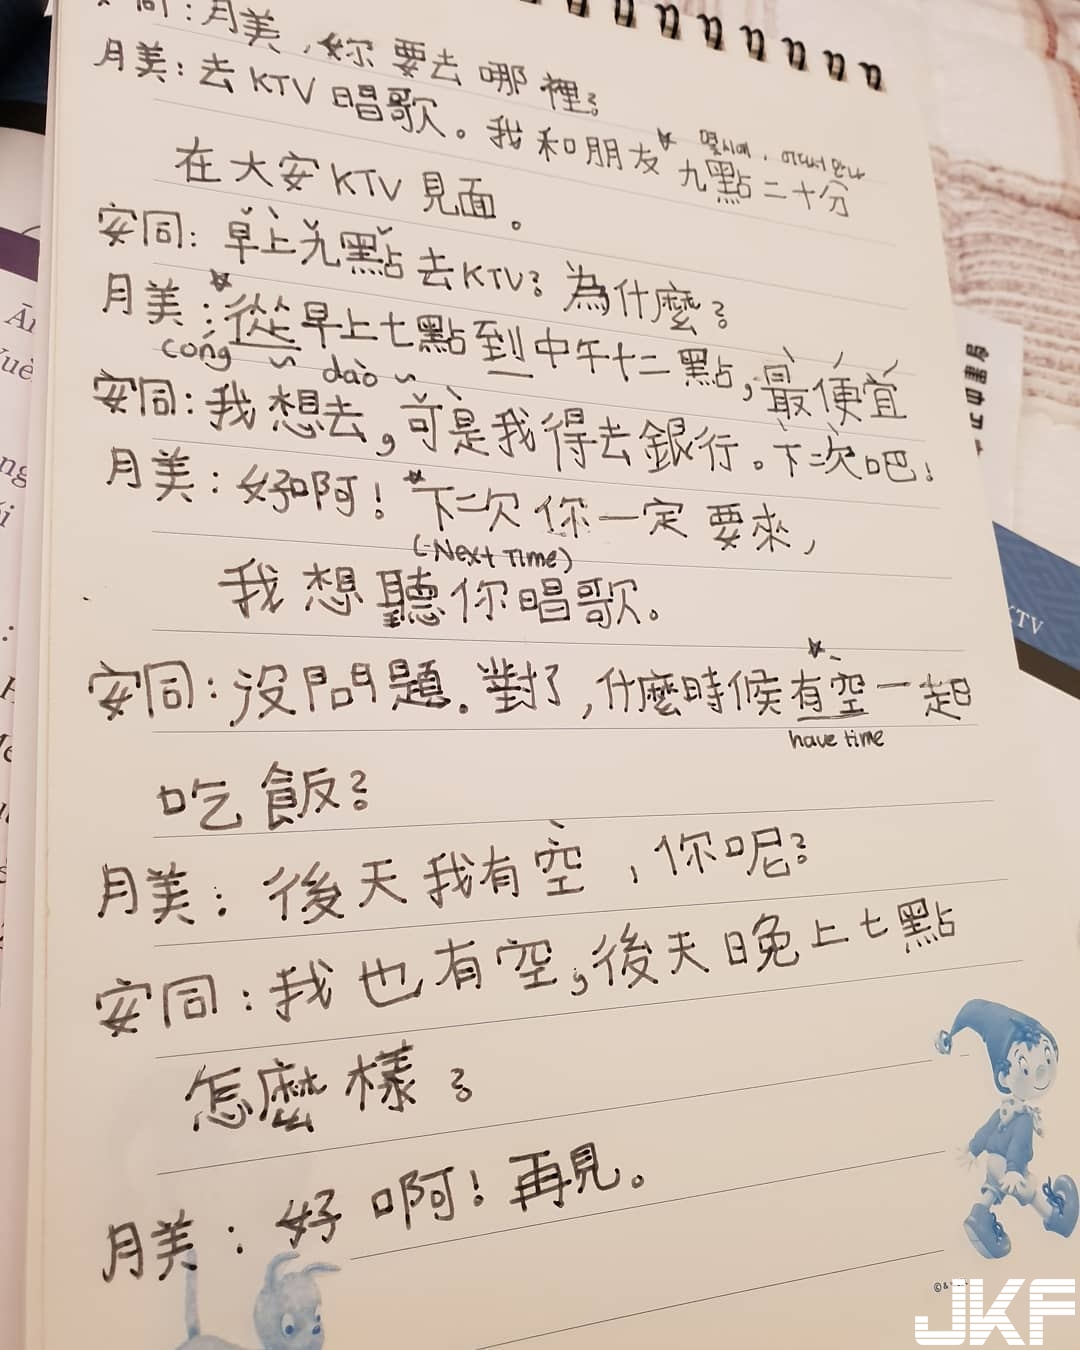 安同:月美,妳要去哪裡?
月美:去KTV唱歌。我和朋友九點二十分
몇시에, 어디서 만나
在大安KTV見面。
安同:早上九點去KTV?為什麼?
月美:從早上七點到中午十二點,最便宜
cóng ~ dào ~
安同:我想去,可是我得去銀行。下次吧!
月美:好啊!下次你一定要來,
(-Next Time)
我想聽你唱歌。
安同:沒問題.對了,什麼時候有空一起
have time
吃飯?
月美:後天我有空,你呢?
安同:我也有空,後天晚上七點
怎麼樣?
月美:好啊!再見。
KTV
JKF